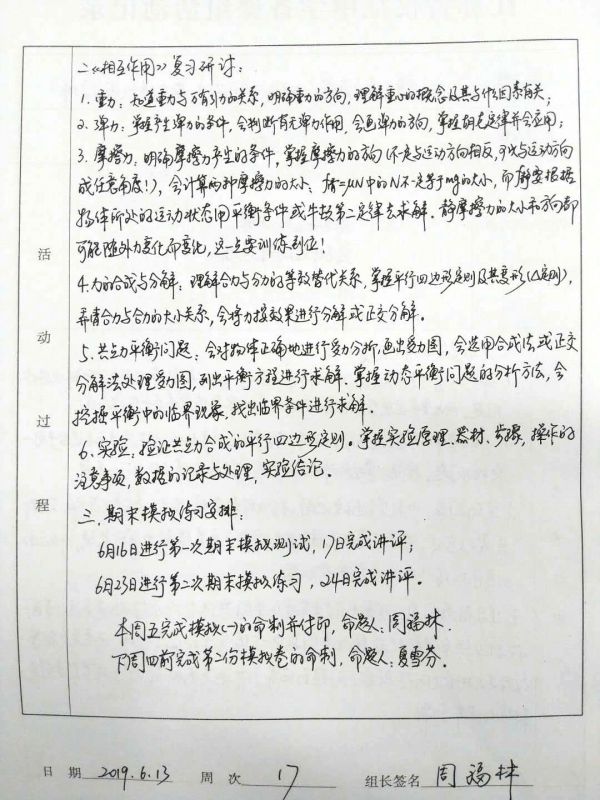 二《相互作用》复习研讨：
1. 重力：知道重力与万有引力的关系，明确重力的方向，理解重心的概念及其与什么因素有关；
2. 弹力：掌握产生弹力的条件，会判断有无弹力作用，会画弹力的方向，掌握胡克定律并会应用；
3. 摩擦力：明确摩擦力产生的条件，掌握摩擦力的方向（不是与运动方向相反，可以与运动方向
成任意角度！），会计算两种摩擦力的大小：f滑=μN中的N不是等于mg的大小，而要根据
物体所处的运动状态用平衡条件或牛顿第二定律去求解．静摩擦力的大小和方向都
可能随外力变化而变化，这一点要训练到位！
4. 力的合成与分解：理解合力与分力的等效替代关系，掌握平行四边形定则及其变形（△定则），
弄清合力与合力的大小关系，会将力按效果进行分解或正交分解．
5. 共点力平衡问题：会对物体正确地进行受力分析，画出受力图，会选用合成法或正交
分解法处理受力图，列出平衡方程进行求解．掌握动态平衡问题的分析方法，会
挖掘平衡中的临界现象，找出临界条件进行求解．
6. 实验，验证共点力合成的平行四边形定则。掌握实验原理、器材、步骤，操作的
注意事项，数据的记录与处理，实验结论．
三．期末模拟练习安排：
6月16日进行第一次期末模拟测试，17日完成讲评；
6月23日进行第二次期末模拟练习，24日完成讲评。
本周五完成模拟(一)的命制并付印，命题人：周福林．
下周四前完成第二份模拟卷的命制，命题人：夏雪芬．
活
动
过
程
日 期 2019.6.13 周 次 17 组长签名 周福林